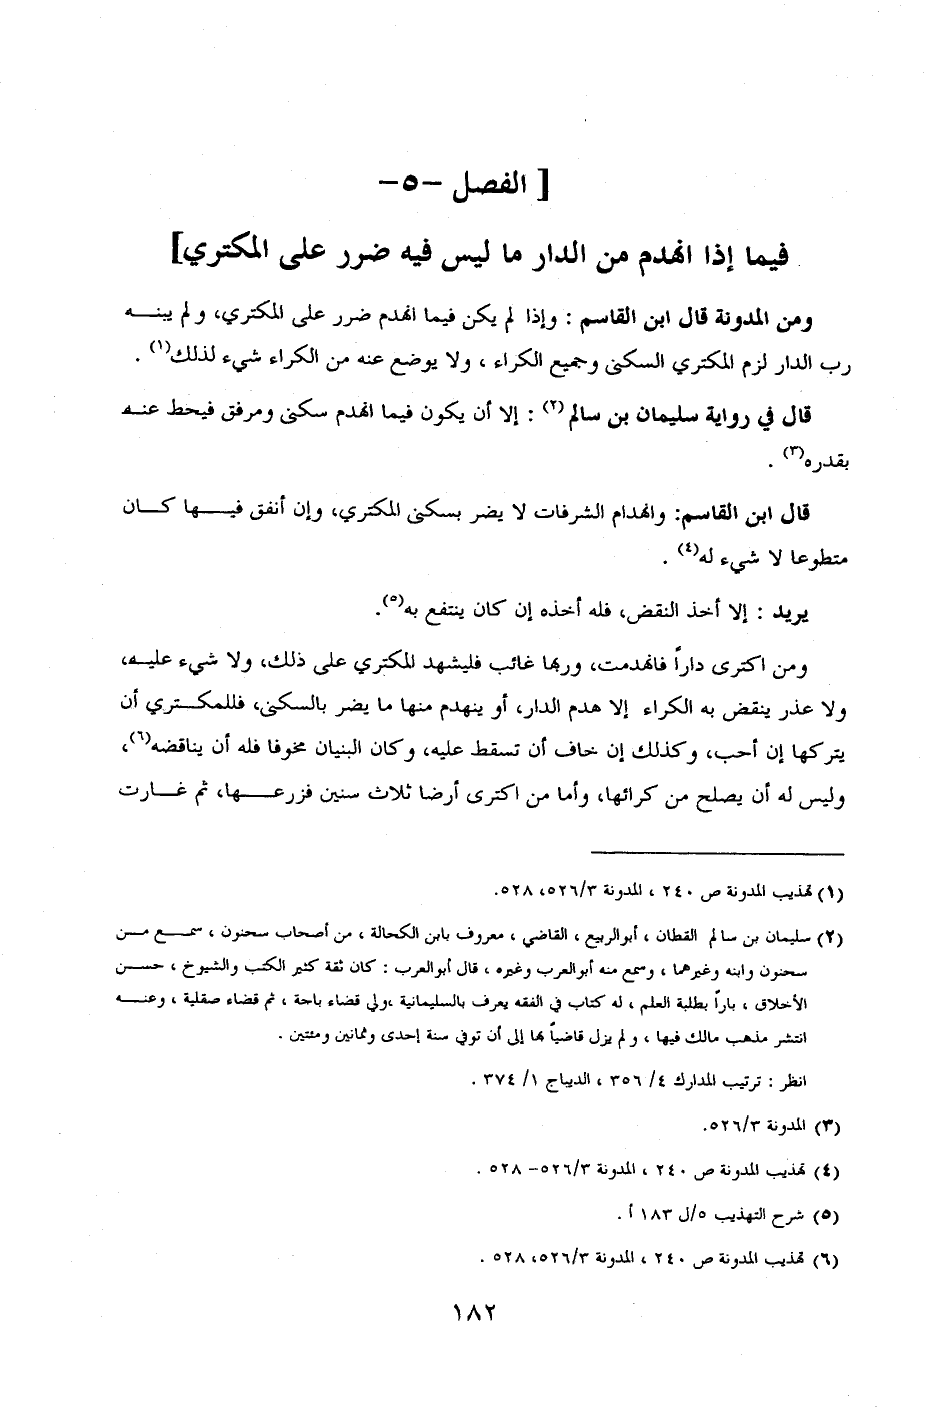 [ الفصل -٥-
فيما إذا انهدم من الدار ما ليس فيه ضرر على المكتري]
ومن المدونة قال ابن القاسم : وإذا لم يكن فيما انهدم ضرر على المكتري، ولم يبنه
رب الدار لزم المكتري السكنى وجميع الكراء ، ولا يوضع عنه من الكراء شيء لذلك(١) .
قال في رواية سليمان بن سالم(٢) : إلا أن يكون فيما انهدم سكنى ومرفق فيحط عنه
بقدره(٣) .
قال ابن القاسم: وانهدام الشرفات لا يضر بسكنى المكتري، وإن أنفق فيها كان
متطوعا لا شيء له(٤) .
يريد : إلا أخذ النقض، فله أخذه إن كان ينتفع به(٥).
ومن اكترى داراً فانهدمت، وربها غائب فليشهد المكتري على ذلك، ولا شيء عليه،
ولا عذر ينقض به الكراء إلا هدم الدار، أو ينهدم منها ما يضر بالسكنى، فللمكتري أن
يتركها إن أحب، وكذلك إن خاف أن تسقط عليه، وكان البنيان مخوفا فله أن يناقضه(٦)،
وليس له أن يصلح من كرائها، وأما من اكترى أرضا ثلاث سنين فزرعها، ثم غارت
(١) تهذيب المدونة ص ٢٤٠ ، المدونة ٥٢٦/٣، ٥٢٨.
(٢) سليمان بن سالم القطان ، أبوالربيع ، القاضي ، معروف بابن الكحالة ، من أصحاب سحنون ، سمع من
سحنون وابنه وغيرهما ، وسمع منه أبوالعرب وغيره ، قال أبوالعرب : كان ثقة كثير الكتب والشيوخ ، حسن
الأخلاق ، باراً بطلبة العلم ، له كتاب في الفقه يعرف بالسليمانية ،ولي قضاء باجة ، ثم قضاء صقلية ، وعنه
انتشر مذهب مالك فيها ، ولم يزل قاضياً بها إلى أن توفي سنة إحدى وثمانين ومئتين .
انظر : ترتيب المدارك ٤/ ٣٥٦ ، الديباج ١/ ٣٧٤ .
(٣) المدونة ٥٢٦/٣.
(٤) تهذيب المدونة ص ٢٤٠ ، المدونة ٥٢٦/٣- ٥٢٨ .
(٥) شرح التهذيب ٥/ل ١٨٣ أ .
(٦) تهذيب المدونة ص ٢٤٠ ، المدونة ٥٢٦/٣، ٥٢٨ .
١٨٢